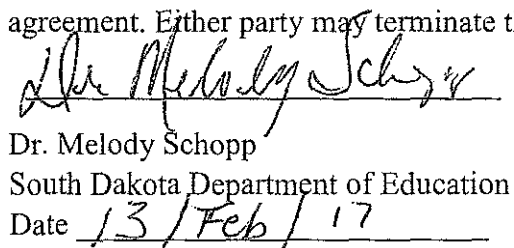 agreement. Either party may terminate t
Dr Melody Schopp
Dr. Melody Schopp
South Dakota Department of Education
Date 13 / Feb / 17